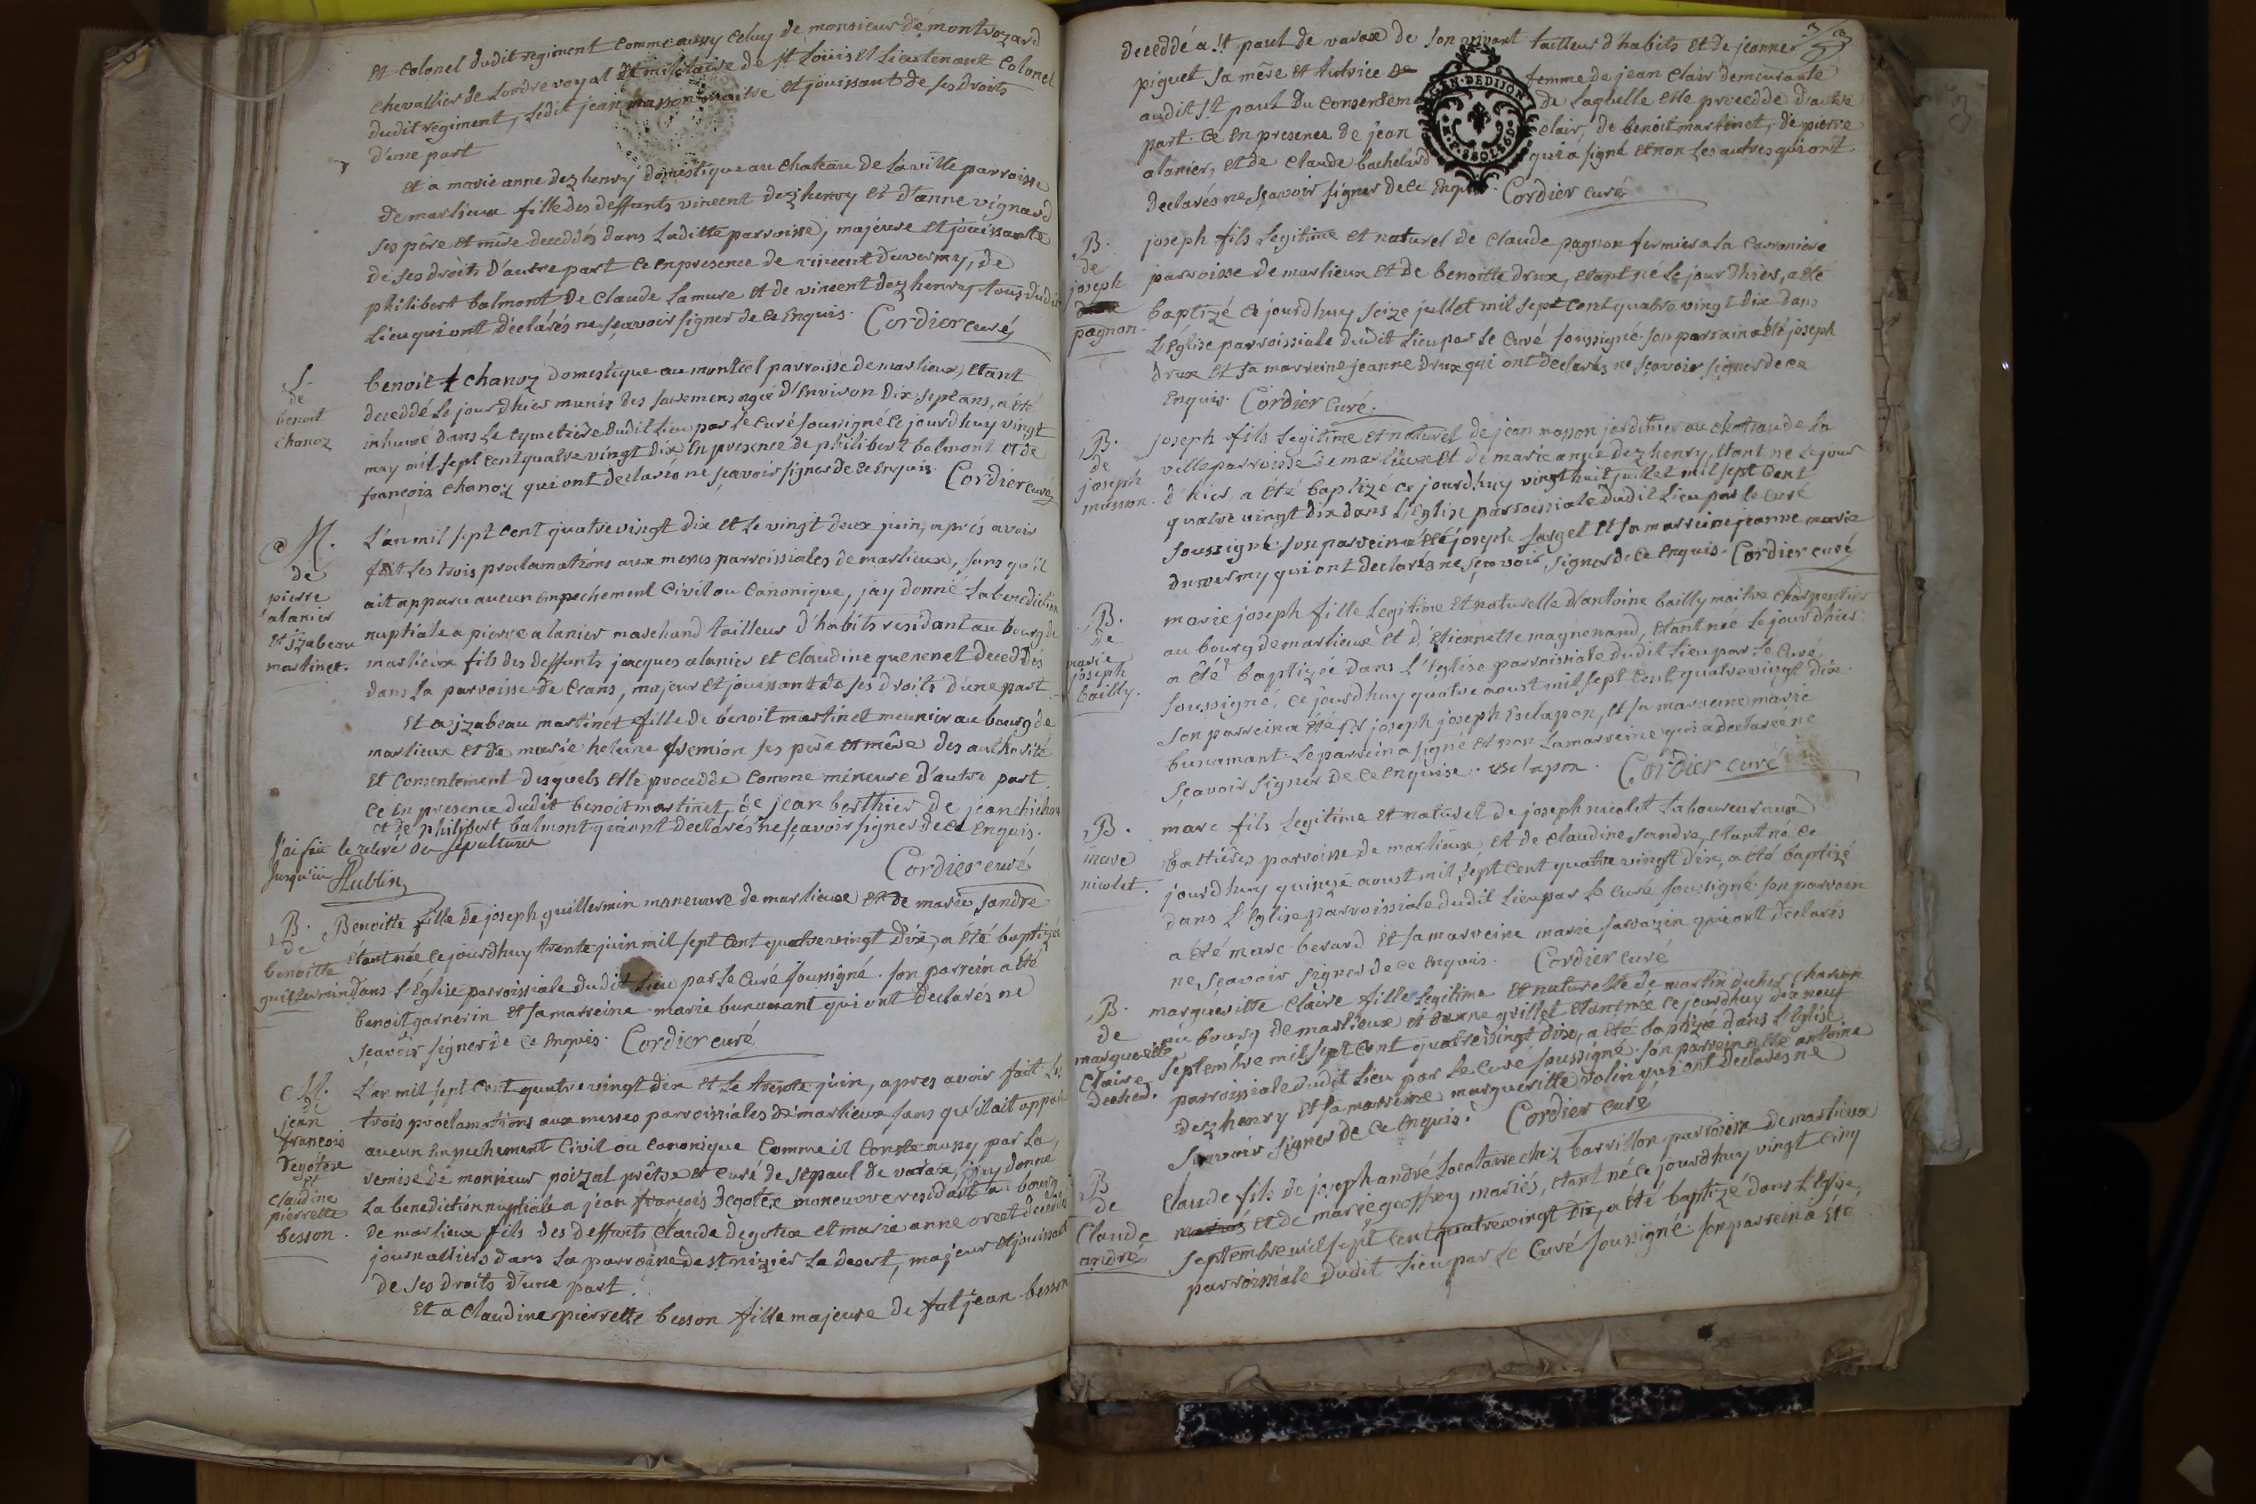 et colonel dudit regiment comme aussy celuy de monsieur de montvozard
chevallier de Lordre royal et militaire de st Louis et Lieutenant colonel
dudit regiment, ledit jean masson maitre et jouissant de ses droits
d'une part
et a marie anne dezhenry domestique au chateau de la ville parroisse
de marlieux fille des deffunts vincent dezhenry et d'anne vignard
ses père et mère deceddés dans laditte parroisse, majeure et jouissante
de ses droits d'autre part ce en presence de vincent duvermy, de
philibert balmont de claude lamure et de vincent dezhenry tous dudit
lieu qui ont declarés ne sçavoir signer de ce enquis. Cordier curé
S.
de
benoit
chanoz
benoit chanoz domestique au montcel parroisse de marlieux, etant
deceddé le jour d'hier munis des sacremens agé d'environ dix sept ans, a été
inhumé dans le cymetière dudit lieu par le curé soussigné ce jourd'huy vingt
may mil sept cent quatre vingt dix en presence de philibert balmont et de
françois chanoz qui ont declarés ne sçavoir signer de ce enquis. Cordier curé
M.
de
pierre
alanier
et jzabeau
martinet.
L'an mil sept cent quatre vingt dix et le vingt deux juin, après avoir
fait les trois proclamations aux messes parroissiales de marlieux, sans qu'il
ait apparu aucun empechement civil ou canonique, j'ay donné la benediction
nuptiale a pierre alanier marchand tailleur d'habits residant au bourg de
marlieux fils des deffunts jacques alanier et claudine quenenet deceddés
dans la parroisse de crans, majeur et jouissant de ses droits d'une part
et a jzabeau martinet fille de benoit martinet meunier au bourg de
marlieux et de marie helene fremion ses père et mère des authorité
et consentement desquels elle procedde comme mineure d'autre part
ce en presence dudit benoit martinet, de jean berthier de jean chichon
et de philibert balmont qui ont declarés ne sçavoir signer de ce enquis.
Cordier curé
J'ai fait le relevé des sepultures
jusqu'ici Aublin
B.
de
benoitte
guillermin
Benoitte fille de joseph guillermin maneuvre de marlieux et de marie sandre
étant née ce jourd'huy trente juin mil sept cent quatre vingt dix, a été baptizé
dans l'Église parroissiale dudit lieu par le curé soussigné. son parrein a été
benoit garnerin et sa marreine marie bunamant qui ont declarés ne
sçavoir signer de ce enquis. Cordier curé
M.
de
jean
françois
degotex
et
claudine
pierrette
besson.
L'an mil sept cent quatre vingt dix et le trente juin, apres avoir fait les
trois proclamations aux messes parroissiales de marlieux sans qu'il ait apparu
aucun empechement civil ou canonique comme il conste aussy par la
remise de monsieur poizal prêtre et curé de st paul de varax, j'ay donné
la benediction nuptiale a jean françois degotex maneuvre residant au bourg
de marlieux fils des deffunts claude degotex et marie anne orcet deceddés
journalliers dans la parroisse de st nizier le desert, majeur et jouissant
de ses droits d'une part.
et a claudine pierrette besson fille majeure de fut jean besson
deceddé a st paul de varax de son vivant tailleur d'habits et de jeanne
piguet sa mère et tutrice femme de jean clair demeurante
audit st paul du consentem de laquelle elle procedde d'autre
part. ce en presence de jean clair, de benoit martinet, de pierre
alanier, et de claude bachelard qui a signé et non les autres qui ont
declarés ne sçavoir signer de ce enquis. Cordier curé
GEN. DE DIJON
B.
de
joseph
pagnon.
joseph fils legitime et naturel de claude pagnon fermier a la caronniere
parroisse de marlieux et de benoitte drux, etant né le jour d'hier, a été
baptizé ce jourd'huy seize jullet mil sept cent quatre vingt dix dans
l'Église parroissiale dudit lieu par le curé soussigné. son parrain a été joseph
drux et sa marreine jeanne drux qui ont declarés ne sçavoir signer de ce
enquis. Cordier curé.
B.
de
joseph
masson.
joseph fils legitime et naturel de jean masson jardinier au chateau de la
ville parroisse de marlieux et de marie anne dezhenry, etant né le jour
d'hier, a été baptizé ce jourd'huy vingt huit juillet mil sept cent
quatre vingt dix dans l'Église parroissiale dudit lieu par le curé
soussigné. son parrein a été joseph farget et sa marreine jeanne marie
duvermy qui ont declarés ne sçavoir signer de ce enquis. Cordier curé
B.
de
marie
joseph
bailly.
marie joseph fille legitime et naturelle d'antoine bailly maitre charpentier
au bourg de marlieux et d'etiennette magnenand, etant née le jour d'hier
a été baptizée dans l'Église parroissiale dudit lieu par le curé
soussigné, ce jourd'huy quatre aoust mil sept cent quatre vingt dix.
son parrein a été sr joseph joseph Esclapon, et sa marreine marie
bunamant. le parrein a signé et non la marreine qui a declarée ne
sçavoir signer de ce enquise. Esclapon. Cordier curé
B.
marc
nicolet.
marc fils legitime et naturel de joseph nicolet laboureur aux
battières parroisse de marlieux et de claudine sandre, etant né ce
jourd'huy quinze aoust mil sept cent quatre vingt dix, a été baptizé
dans l'Église parroissiale dudit lieu par le curé soussigné. son parrein
a été marc berard et sa marreine marie sarrazin qui ont declarés
ne sçavoir signer de ce enquis. Cordier curé
B.
de
margueritte
claire
deched.
margueritte claire fille legitime et naturelle de martin charon
au bourg de marlieux et anne grillet etant née ce jourd'huy dix neuf
septembre mil sept cent quatre vingt dix, a été baptizée dans l'Église
parroissiale dudit lieu par le curé soussigné. son parrein a été antoine
dezhenry et sa marreine margueritte rolin qui ont declarés ne
sçavoir signer de ce enquis. Cordier curé
B
de
Claude
andré
Claude fils de joseph andré locataire chez barrillon parroisse de marlieux
et de marie geoffrey mariés, etant né ce jourd'huy vingt cinq
septembre mil sept cent quatre vingt dix, a été baptizé dans l'Église
parroissiale dudit lieu par le curé soussigné. son parrein a été